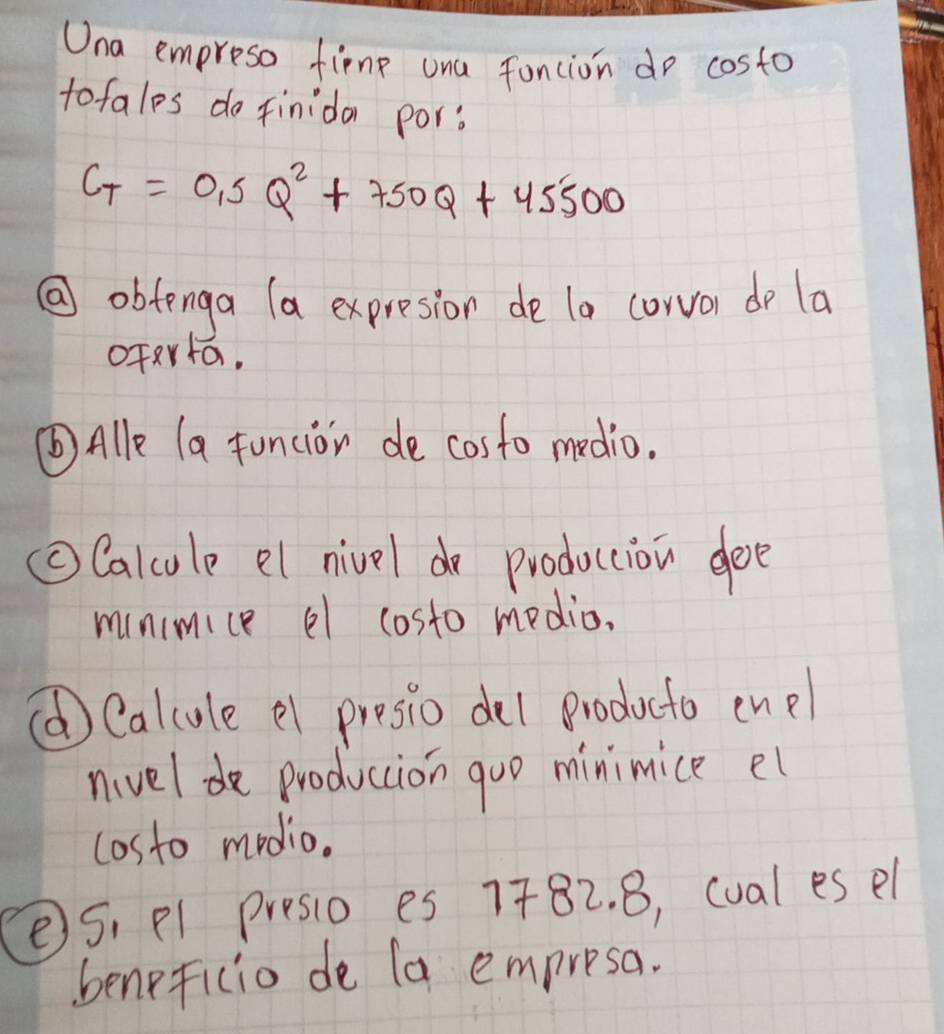 Una empresa tiene una función de costo
totales definida por:
C_T = 0,5 Q² + 750Q + 45500
ⓐ obtenga la expresion de la curva de la
oferta.
ⓑ Alle la función de costo medio.
ⓒ Calcule el nivel de producción que
minimice el costo medio.
ⓓ Calcule el presio del producto en el
nivel de producción que minimice el
costo medio.
ⓔ Si el presio es 1782.8, cual es el
beneficio de la empresa.